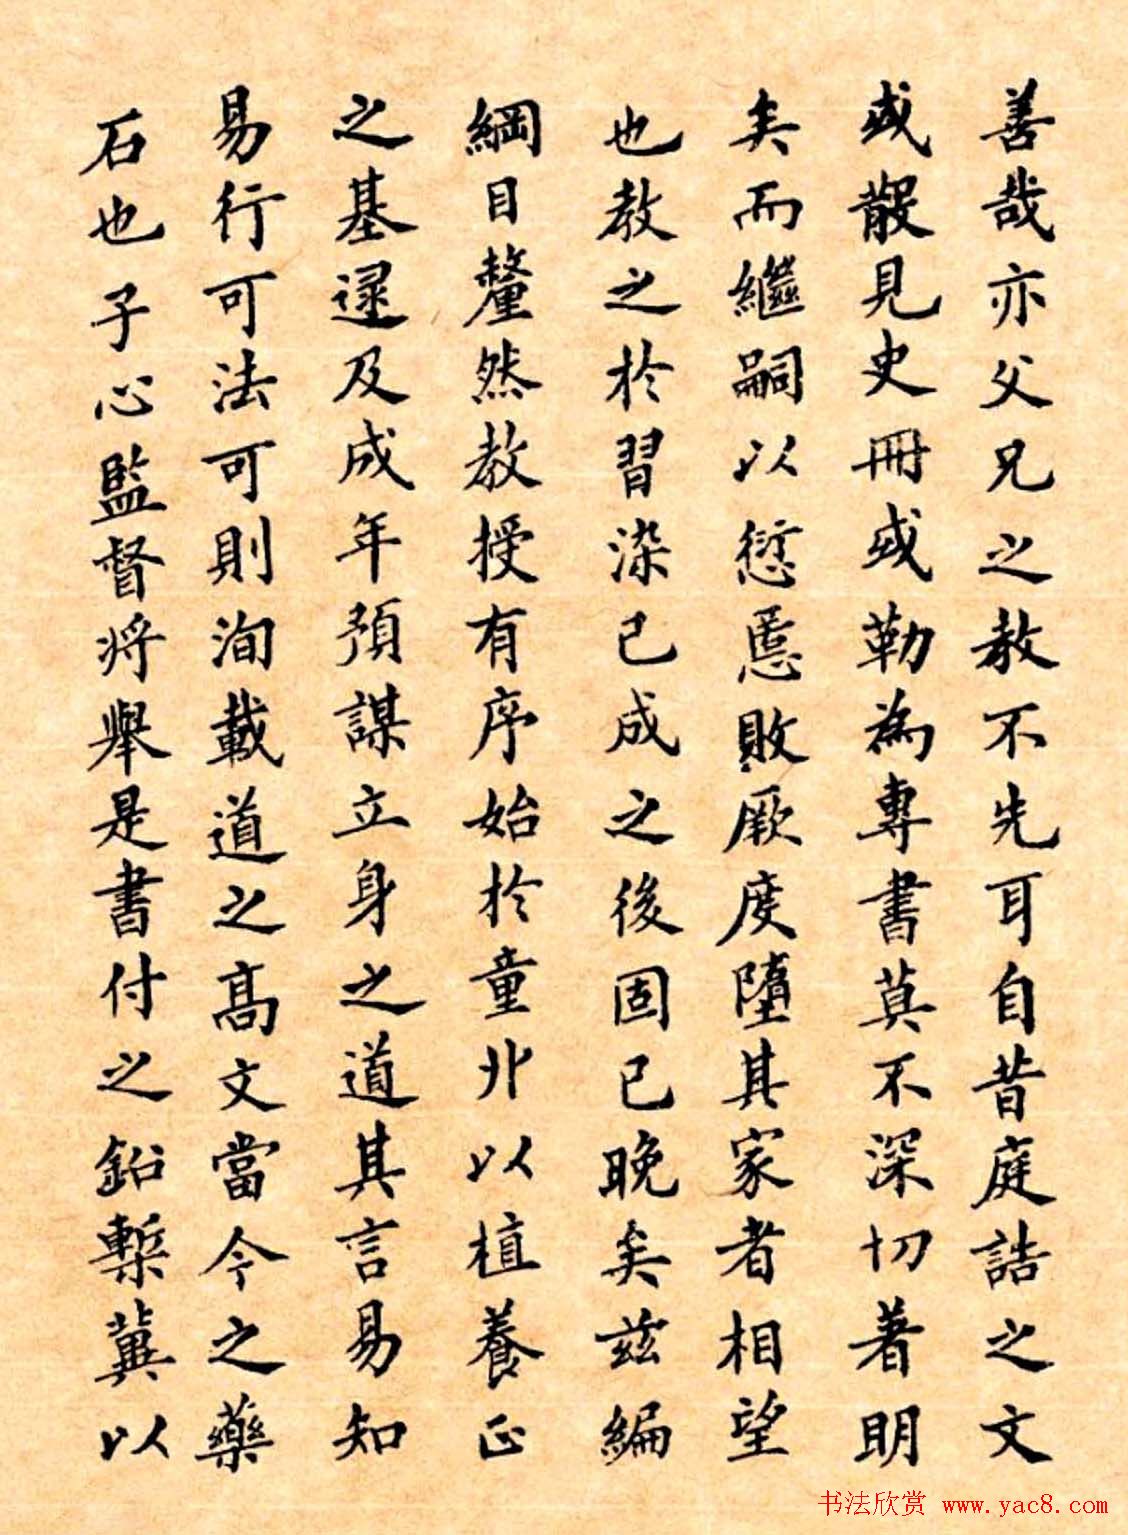 善哉亦父兄之教不先耳自昔庭誥之文
或散見史冊或勒為專書莫不深切著明
矣而繼嗣以愆慝敗厥度墮其家者相望
也教之於習染已成之後固已晚矣茲編
綱目釐然教授有序始於童丱以植養正
之基逮及成年預謀立身之道其言易知
易行可法可則洵載道之高文當今之藥
石也子心監督將舉是書付之鉛槧冀以
书法欣赏 www.yac8.com